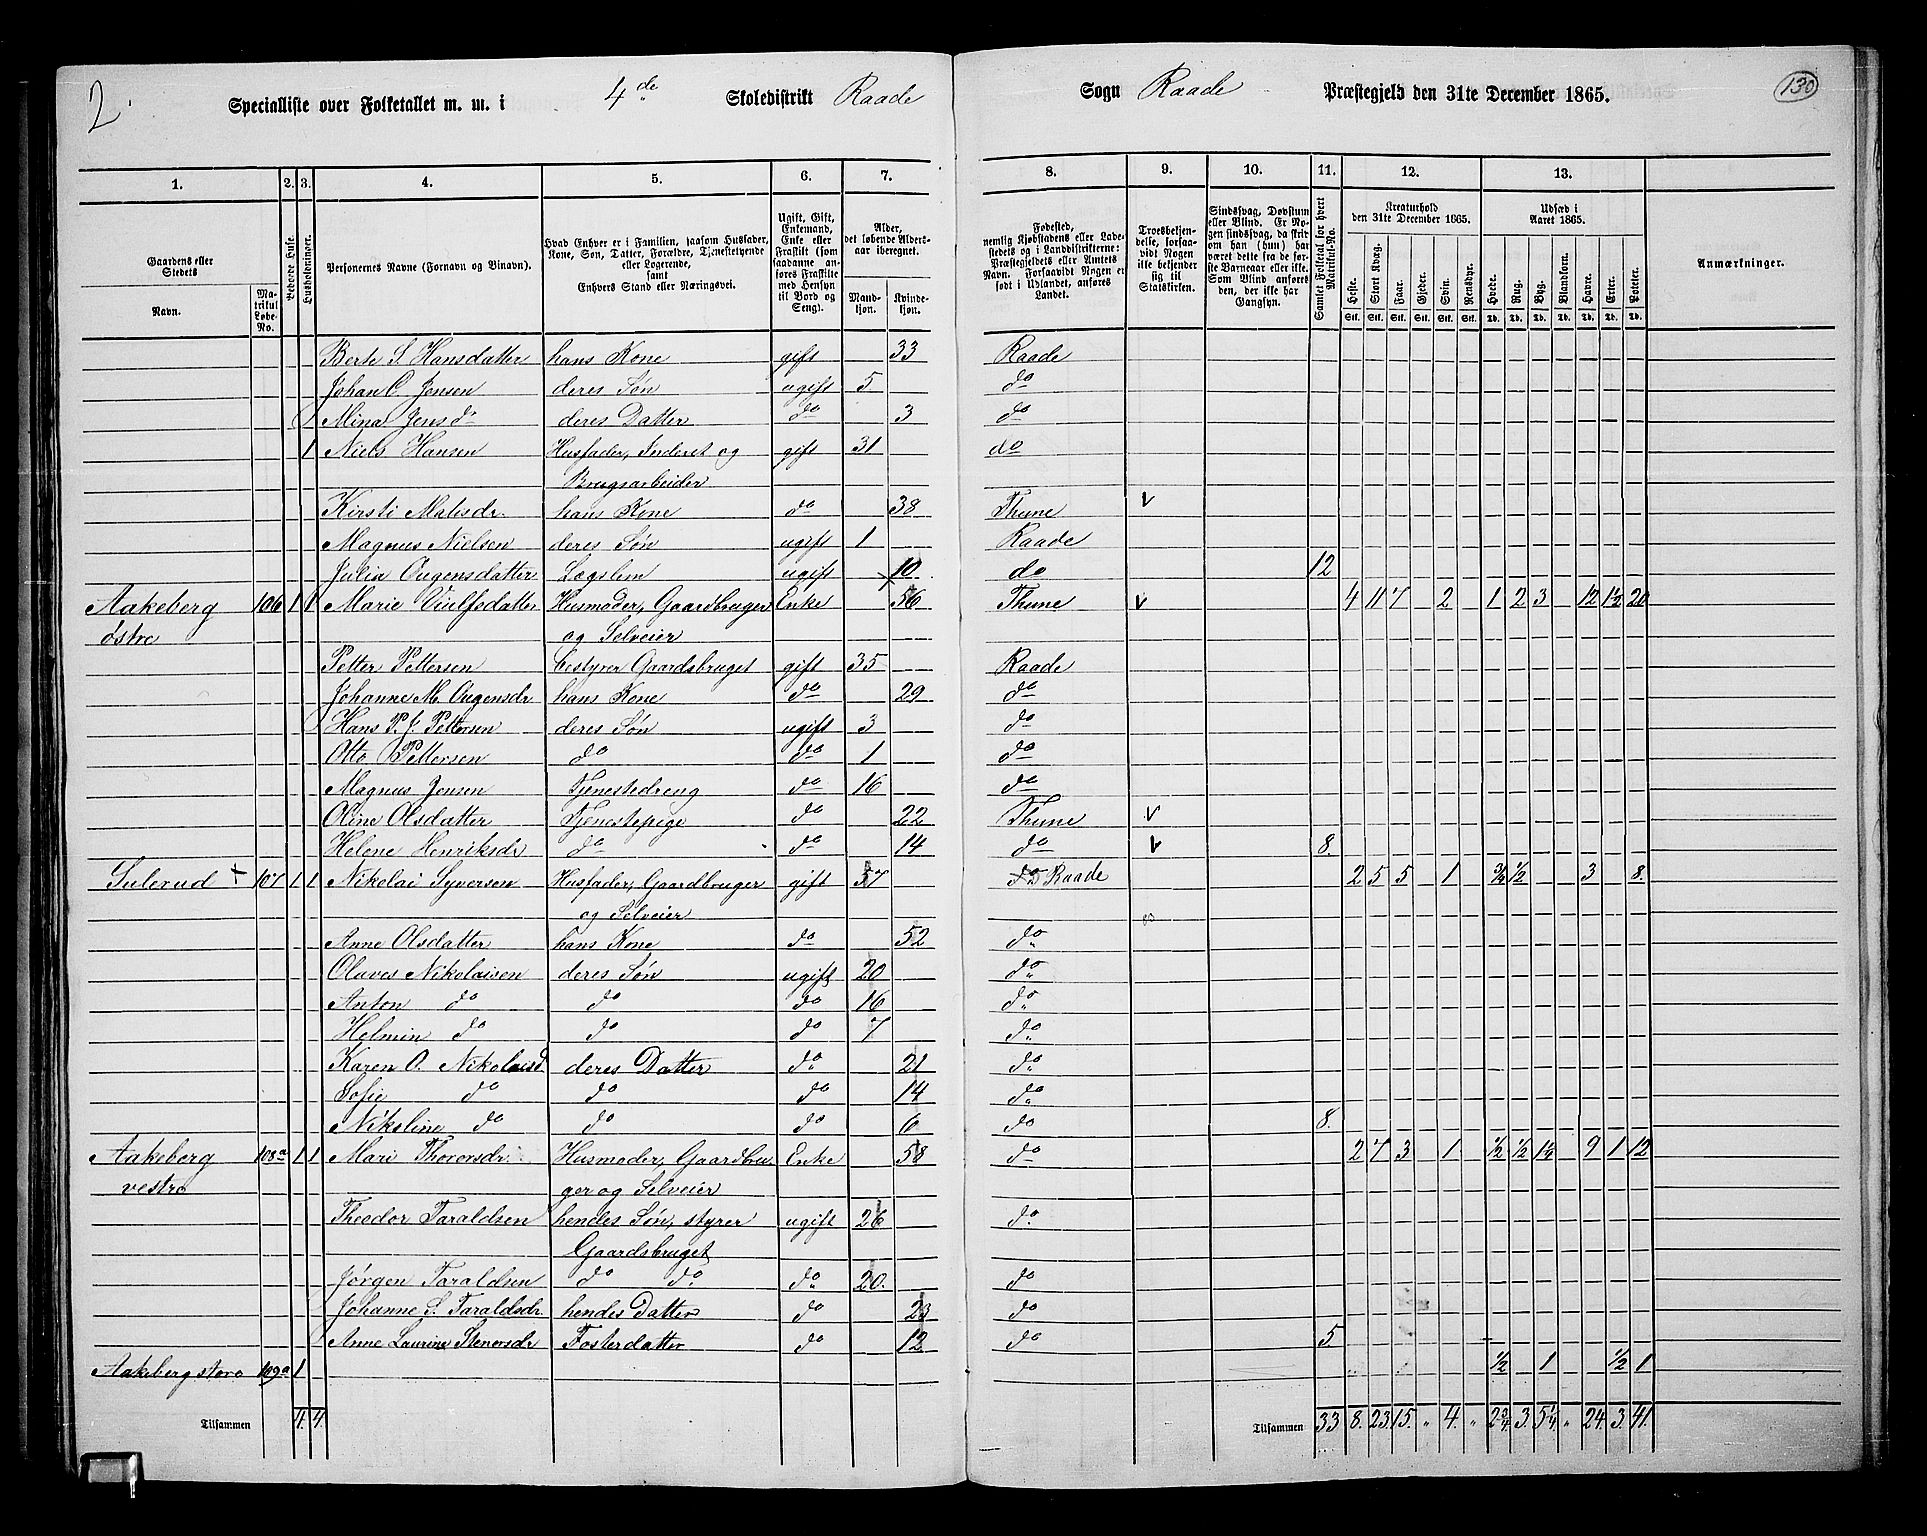 2.
Specialliste over Folketallet m. m. i 4de Skoledistrikt Raade Sogn Raade Præstegjeld den 31te December 1865.
130
1. 2. 3. 4. 5. 6. 7. 8. 9. 10. 11. 12. 13.
Gaardens eller Stedets
Navn.
Matrikul Løbe-No.
Beboede Huse.
Husholdninger.
Personernes Navne (Fornavn og Binavn).
Hvad Enhver er i Familien, saasom Husfader, Kone, Søn, Datter, Forældre, Tjenestetyende eller Logerende, samt Enhvers Stand eller Næringsvei.
Ugift, Gift, Enkemand, Enke eller Fraskilt (som saadanne anføres Fraskilte med Hensyn til Bord og Seng).
Alder, det løbende Aldersaar iberegnet.
Mandkjøn. Kvindekjøn.
Fødested, nemlig Kjøbstadens eller Ladestedets og i Landdistrikterne: Præstegjeldets eller Amtets Navn. Forsaavidt Nogen er født i Udlandet, anføres Landet.
Troesbekjendelse, forsaavidt Nogen ikke bekjender sig til Statskirken.
Sindssvag, Døvstum eller Blind. Er Nogen sindssvag, da skrives om han (hun) har været det fra de første Barneaar eller ikke. Som Blind anføres den, der ikke har Gangsyn.
Samlet Folketal for hvert Matrikul-No.
Kreaturhold den 31te December 1865.
Heste. Stort Kvæg. Faar. Gjeder. Svin. Rensdyr.
Stk. Stk. Stk. Stk. Stk. Stk.
Udsæd i Aaret 1865.
Hvede. Rug. Byg. Blandkorn. Havre. Erter. Poteter.
Td. Td. Td. Td. Td. Td. Td.
Anmærkninger.
Berte S Hansdatter hans Kone gift 33 Raade
Johan C. Jensen deres Søn ugift 5 do
Mina Jensdr deres Datter do 3 do
1 Niels Hansen Husfader, Inderst og gift 31 do
Brugsarbeider
Kirsti Matisdr. hans Kone do 38 Thune v
Magnus Nielsen deres Søn ugift 1 Raade
Julia Ougensdatter Lægslem ugift 10 do 12
Aakeberg 106 1 1 Marie Viulfsdatter Husmoder, Gaardbruger Enke 56 Thune v 4 11 7 2 1 2 3 12 1½ 20
østre og Selveier
Petter Pettersen bestyrer Gaardsbruget gift 35 Raade
Johanne M. Ougensdr hans Kone do 29 do
Hans P. J. Pettersen deres Søn ugift 3 do
Otto Pettersen do do 1 do
Magnus Jensen Tjenestedreng do 16 do
Oline Olsdatter Tjenestepige do 22 Thune v
Helene Henriksdr do do 14 do v 8.
Sulerud + 107 1 1 Nikolai Syversen Husfader, Gaardbruger gift 57 do Raade 2 5 5 1 ¾ ½ 3 8.
og Selveier
Anne Olsdatter hans Kone do 52 do
Olaves Nikolaisen deres Søn ugift 20 do
Anton do do do 16 do
Helmin do do do 7 do
Karen O. Nikolaisd deres Datter do 21 do
Sofie do do do 14 do
Nikoline do do do 6 do 8.
Aakeberg 108a 1 1 Mari Thorersdr. Husmoder, Gaardbru Enke 58 do 2 7 3 1 ½ ½ 1¼ 9 1 12
vestre ger og Selveier
Theodor Taraldsen hendes Søn, styrer ugift 26 do.
Gaardsbruget
Jørgen Taraldsen do do do 20. do
Johanne S. Taraldsdr. hendes Datter do 23 do
Anne Laurine Stenersdr Fosterdatter do 12 do 5.
Aakeberg store 109a 1 ½ 1 ½ 1
Tilsammen 4. 4. Tilsammen 33 8. 23 15. " 4. " 2¾ 3. 5¼ " 24. 3. 41.